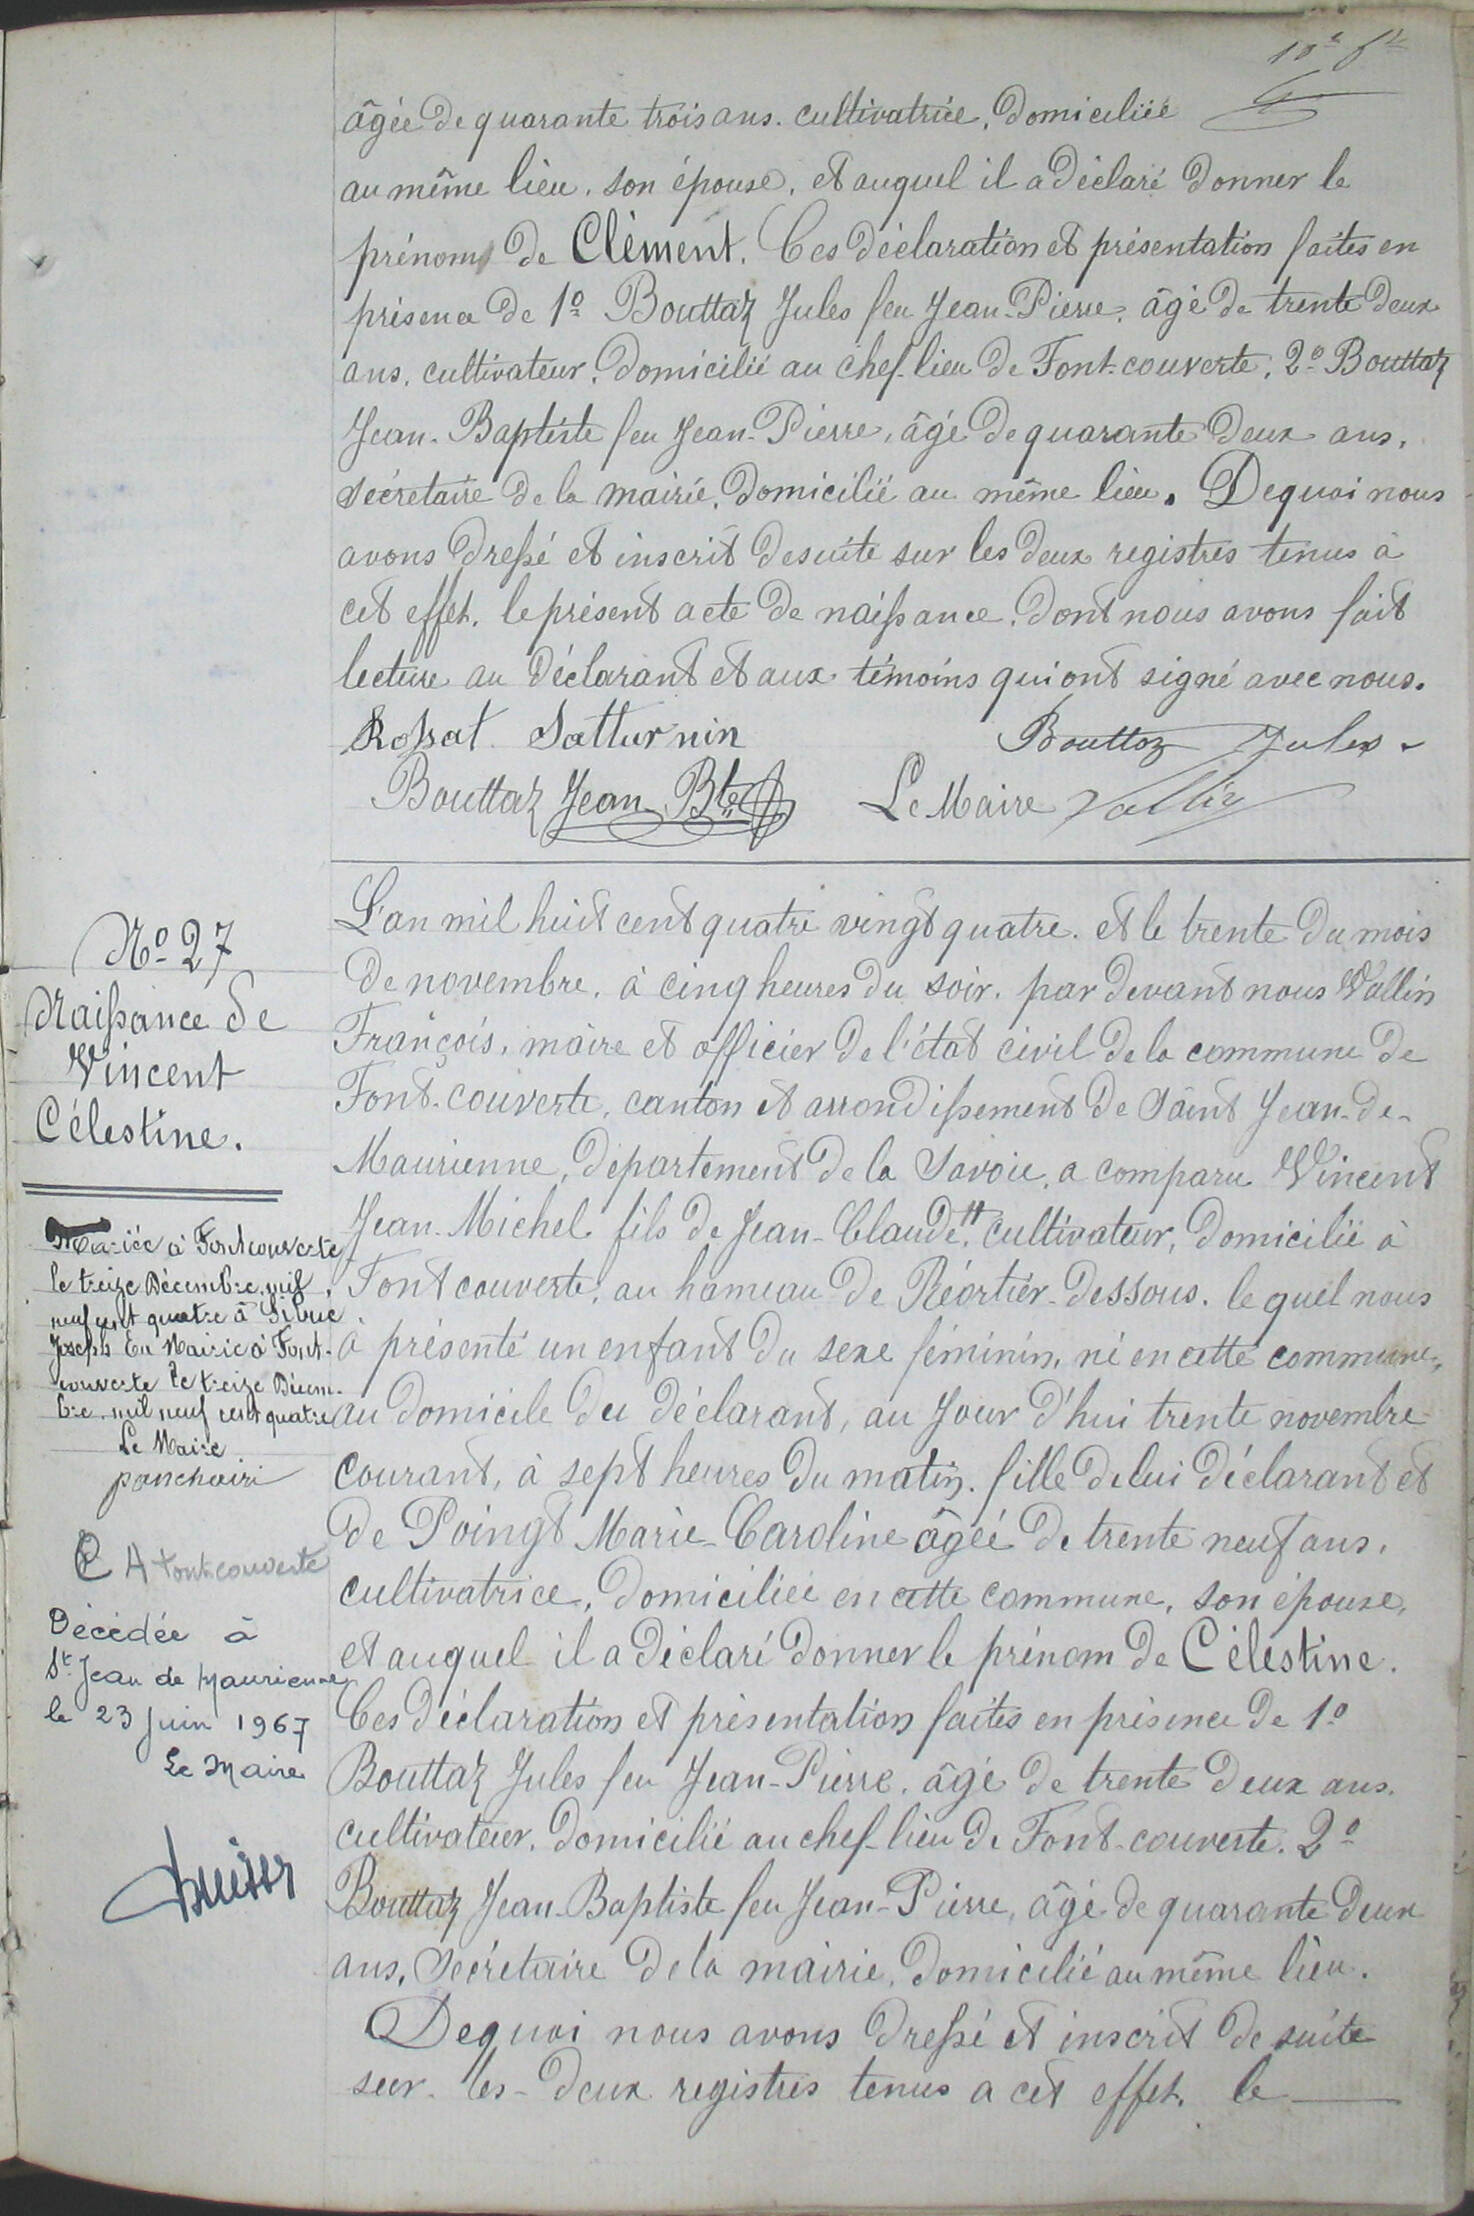 10e ft
âgée de quarante trois ans. cultivatrice, domiciliée
au même lieu, son épouse, et auquel il a déclaré donner le
prénom de Clément. Ces déclaration et présentation faites en
présence de 1o Bouttaz Jules feu Jean-Pierre, âgé de trente deux
ans, cultivateur, domicilié au chef-lieu de Font-couverte, 2o Bouttaz
Jean-Baptiste feu Jean-Pierre, âgé de quarante deux ans,
secrétaire de la mairie, domicilié au même lieu. De quoi nous
avons dressé et inscrit de suite sur les deux registres tenus à
cet effet, le présent acte de naissance, dont nous avons fait
lecture au déclarant et aux témoins qui ont signé avec nous.
Rossat Satturnin Bouttaz Jules
Bouttaz Jean Bte Le Maire Vallin
No 27
Naissance de
Vincent
Célestine.
Mariée à Fontcouverte
le treize Décembre mil
neuf cent quatre à Sibué
Joseph En Mairie à Font-
couverte le treize Décem-
bre mil neuf cent quatre
Le Maire
A Fontcouverte
Décédée à
St Jean de Maurienne
le 23 Juin 1967
Le Maire
L'an mil huit cent quatre vingt quatre, et le trente du mois
de novembre, à cinq heures du soir, par devant nous Vallin
François, maire et officier de l'état civil de la commune de
Font-couverte, canton et arrondissement de Saint Jean-de-
Maurienne, département de la Savoie, a comparu Vincent
Jean-Michel fils de Jean-Claude, cultivateur, domicilié à
Font couverte, au hameau de Réortier-dessous, le quel nous
à présenté un enfant du sexe féminin, né en cette commune,
au domicile du déclarant, au jour d'hui trente novembre
courant, à sept heures du matin, fille de lui déclarant et
de Poingt Marie-Caroline âgée de trente neuf ans,
cultivatrice, domiciliée en cette commune, son épouse,
et auquel il a déclaré donner le prénom de Célestine.
Ces déclaration et présentation faites en présence de 1o
Bouttaz Jules feu Jean-Pierre, âgé de trente deux ans,
cultivateur, domicilié au chef-lieu de Font-couverte, 2o
Bouttaz Jean-Baptiste feu Jean-Pierre, âgé de quarante deux
ans, secrétaire de la mairie, domicilié au même lieu.
De quoi nous avons dressé et inscrit de suite
sur les deux registres tenus a cet effet, le